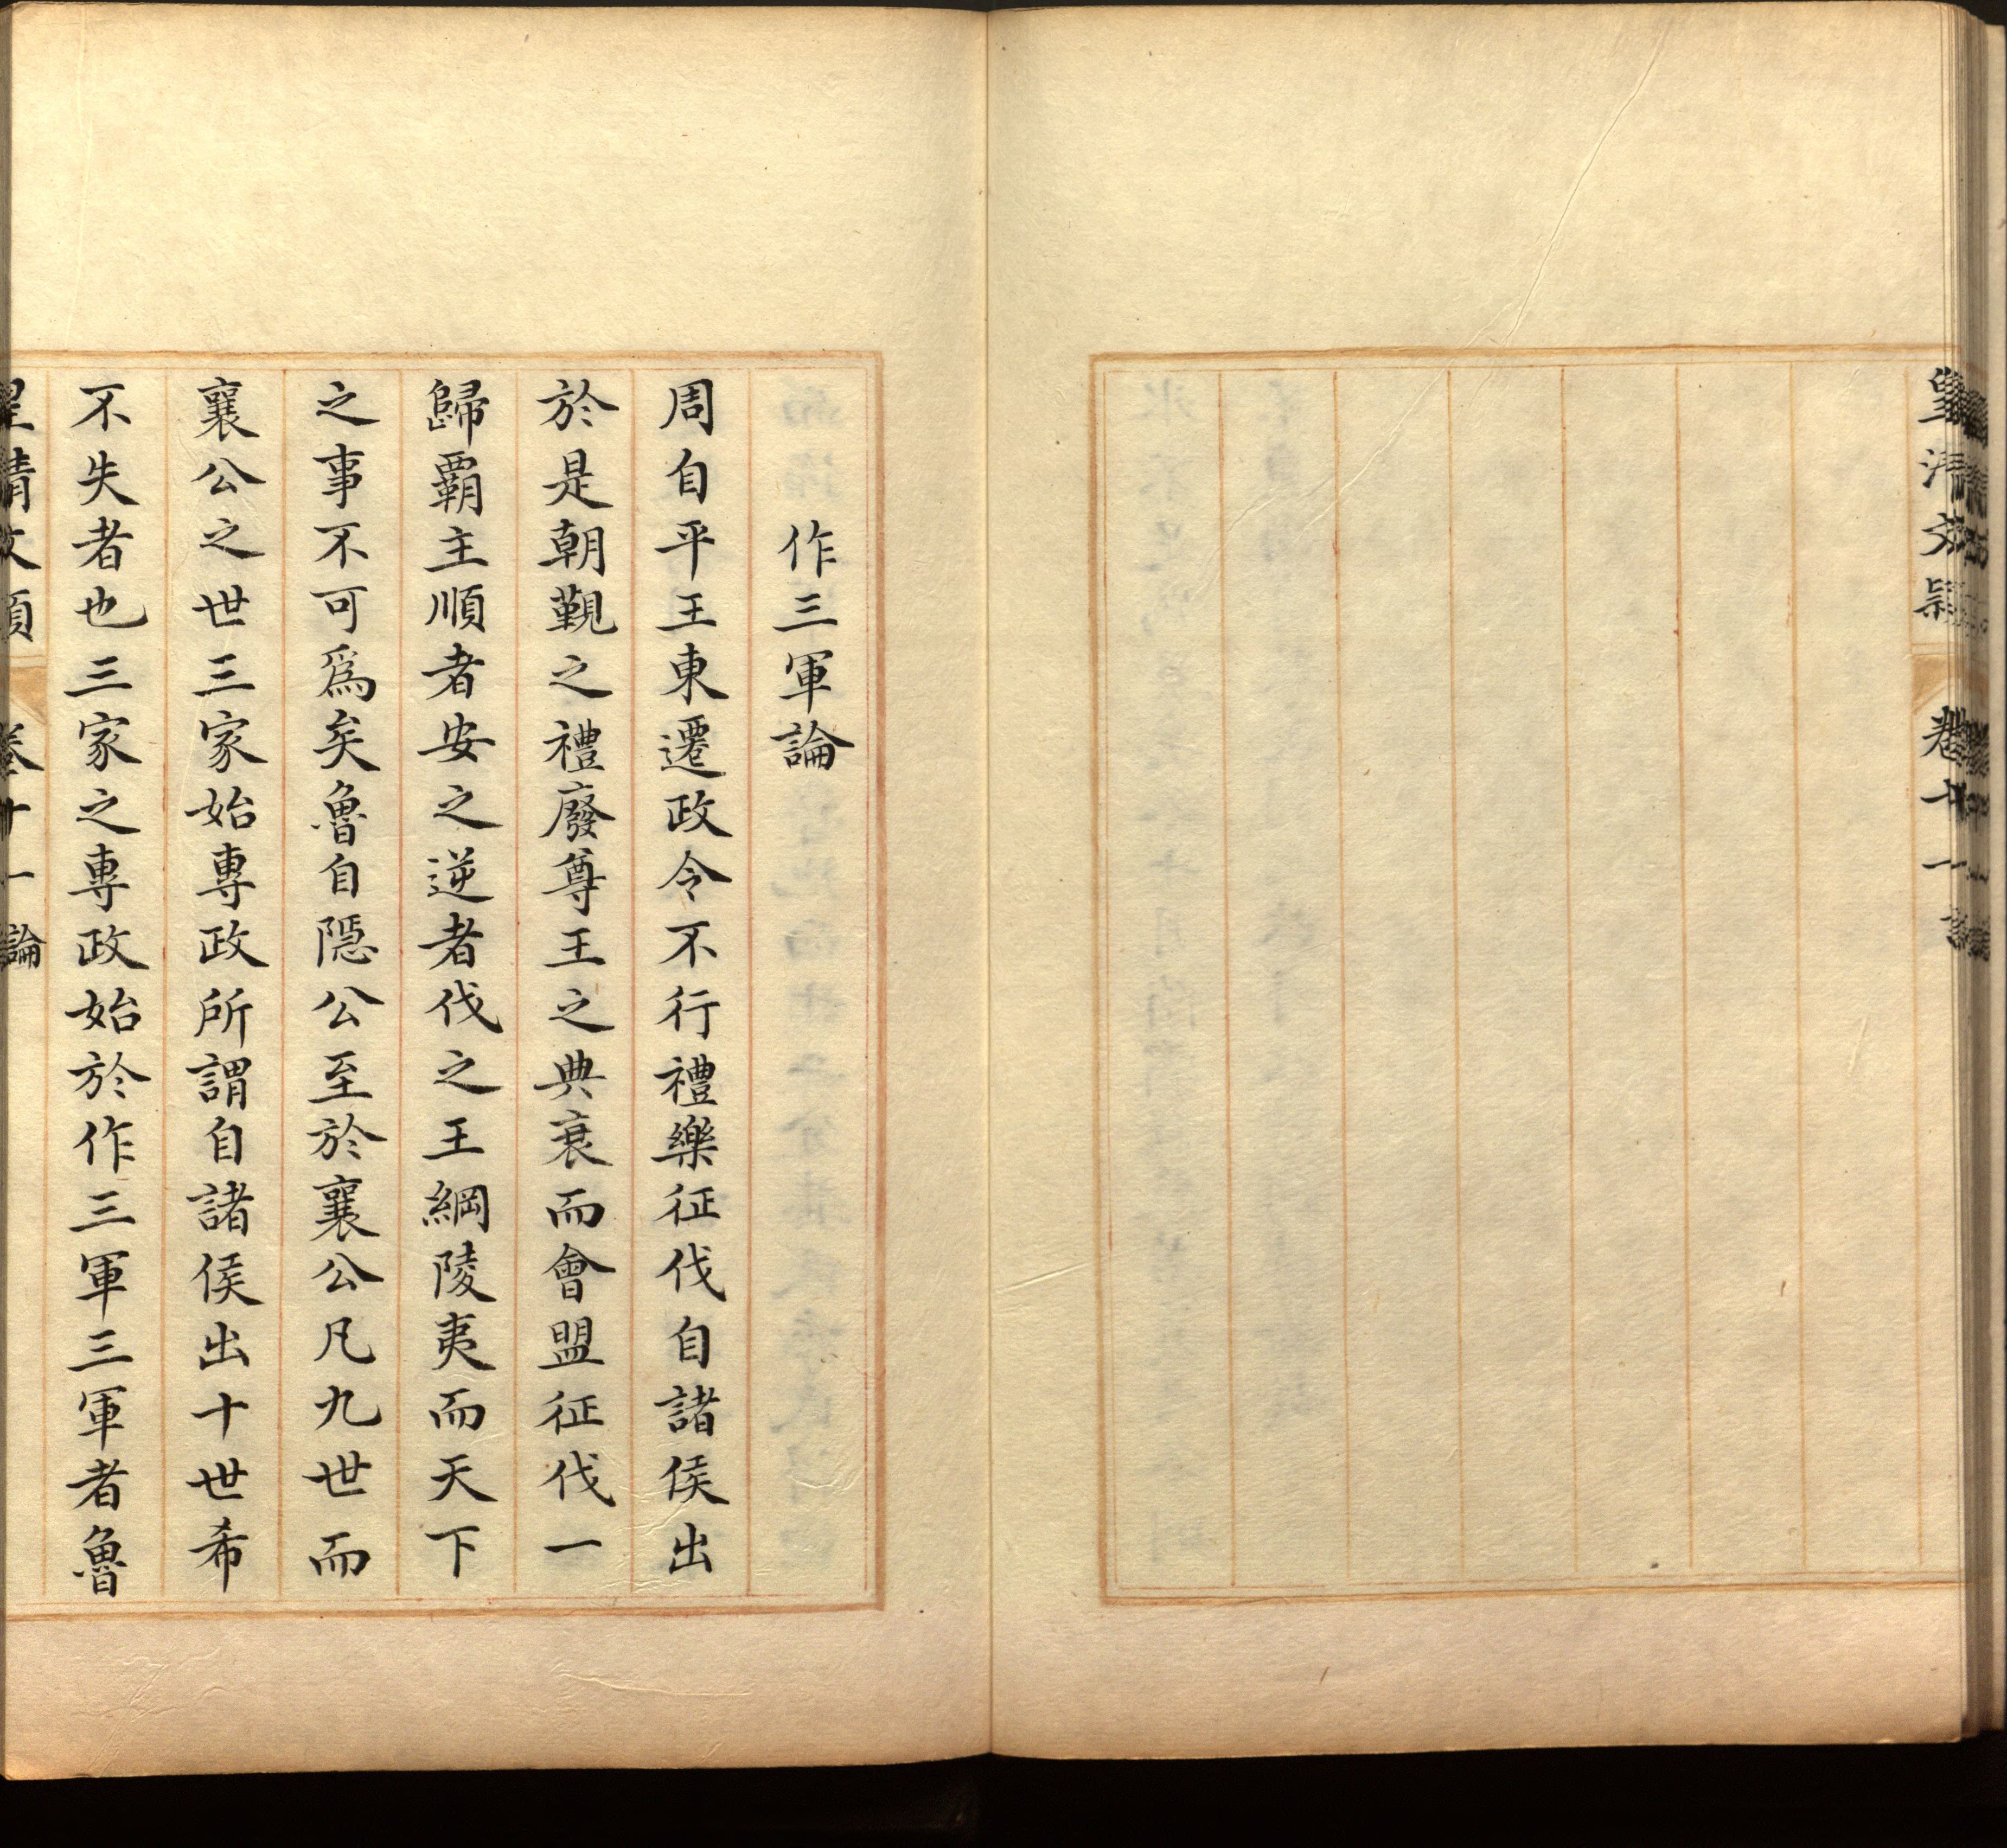 皇清文穎 卷十一 論
作三軍論
周自平王東遷政令不行禮樂征伐自諸侯出
於是朝覲之禮廢尊王之典衰而會盟征伐一
歸霸主順者安之逆者伐之王綱陵夷而天下
之事不可爲矣魯自隱公至於襄公凡九世而
襄公之世三家始專政所謂自諸侯出十世希
不失者也三家之專政始於作三軍三軍者魯
皇清文穎 卷十一 論